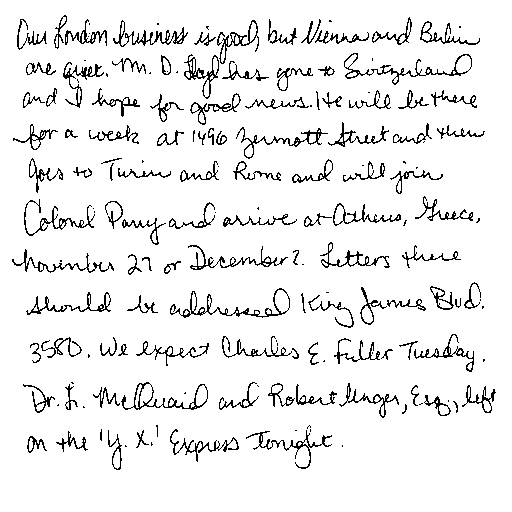 Our London business is good, but Vienna and Berlin
are quiet. Mr. D. Lloyd has gone to Switzerland
and I hope for good news. He will be there
for a week at 1496 Zermott Street and then
goes to Turin and Rome and will join
Colonel Parry and arrive at Athens, Greece,
November 27 or December 2. Letters there
should be addressed King James Blvd.
3580. We expect Charles E. Fuller Tuesday.
Dr. L. McQuaid and Robert Unger, Esq., left
on the 'Y. X.' Express tonight.